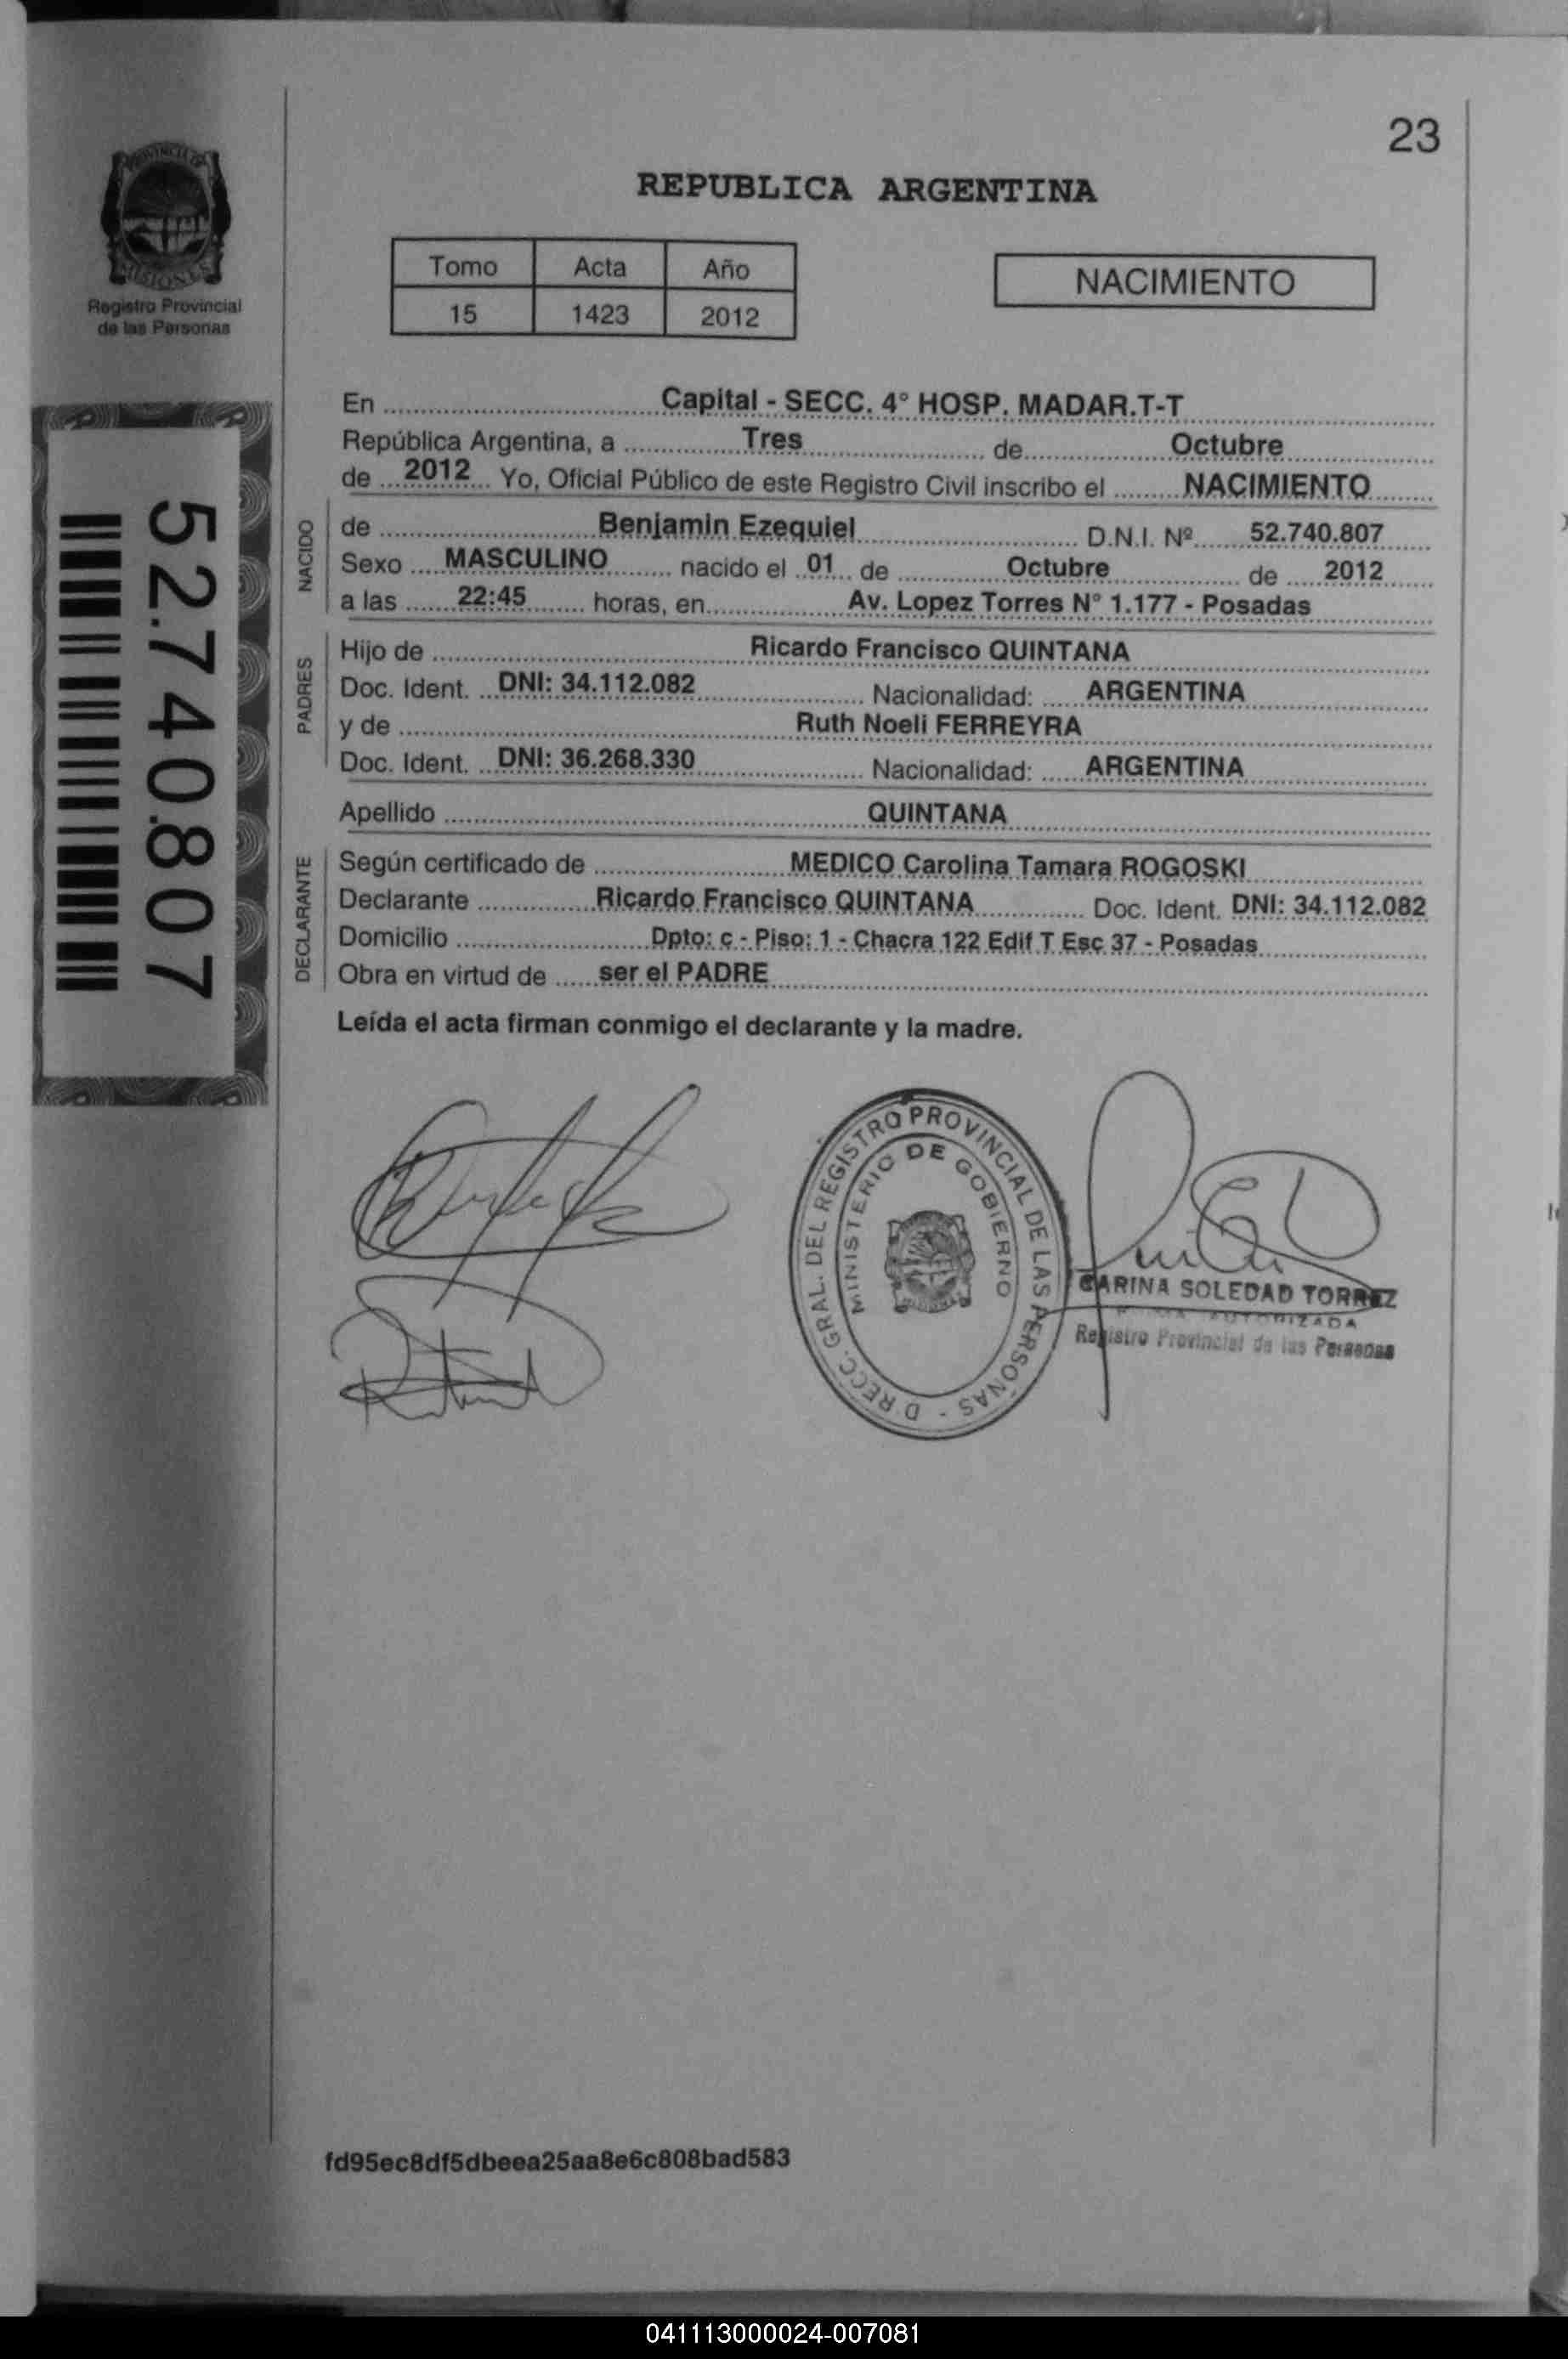 23
PROVINCIA DE
MISIONES
Registro Provincial
de las Personas
REPUBLICA ARGENTINA
Tomo Acta Año
15 1423 2012
NACIMIENTO
52.740.807
En Capital - SECC. 4° HOSP. MADAR.T-T
República Argentina, a Tres de Octubre
de 2012 Yo, Oficial Público de este Registro Civil inscribo el NACIMIENTO
NACIDO
de Benjamin Ezequiel D.N.I. Nº 52.740.807
Sexo MASCULINO nacido el 01 de Octubre de 2012
a las 22:45 horas, en Av. Lopez Torres N° 1.177 - Posadas
PADRES
Hijo de Ricardo Francisco QUINTANA
Doc. Ident. DNI: 34.112.082 Nacionalidad: ARGENTINA
y de Ruth Noeli FERREYRA
Doc. Ident. DNI: 36.268.330 Nacionalidad: ARGENTINA
Apellido QUINTANA
DECLARANTE
Según certificado de MEDICO Carolina Tamara ROGOSKI
Declarante Ricardo Francisco QUINTANA Doc. Ident. DNI: 34.112.082
Domicilio Dpto: c - Piso: 1 - Chacra 122 Edif T Esc 37 - Posadas
Obra en virtud de ser el PADRE
Leída el acta firman conmigo el declarante y la madre.
D RECC. GRAL. DEL REGISTRO PROVINCIAL DE LAS PERSONAS -
MINISTERIO DE GOBIERNO
CARINA SOLEDAD TORREZ
AUTORIZADA
Registro Provincial de las Personas
fd95ec8df5dbeea25aa8e6c808bad583
041113000024-007081